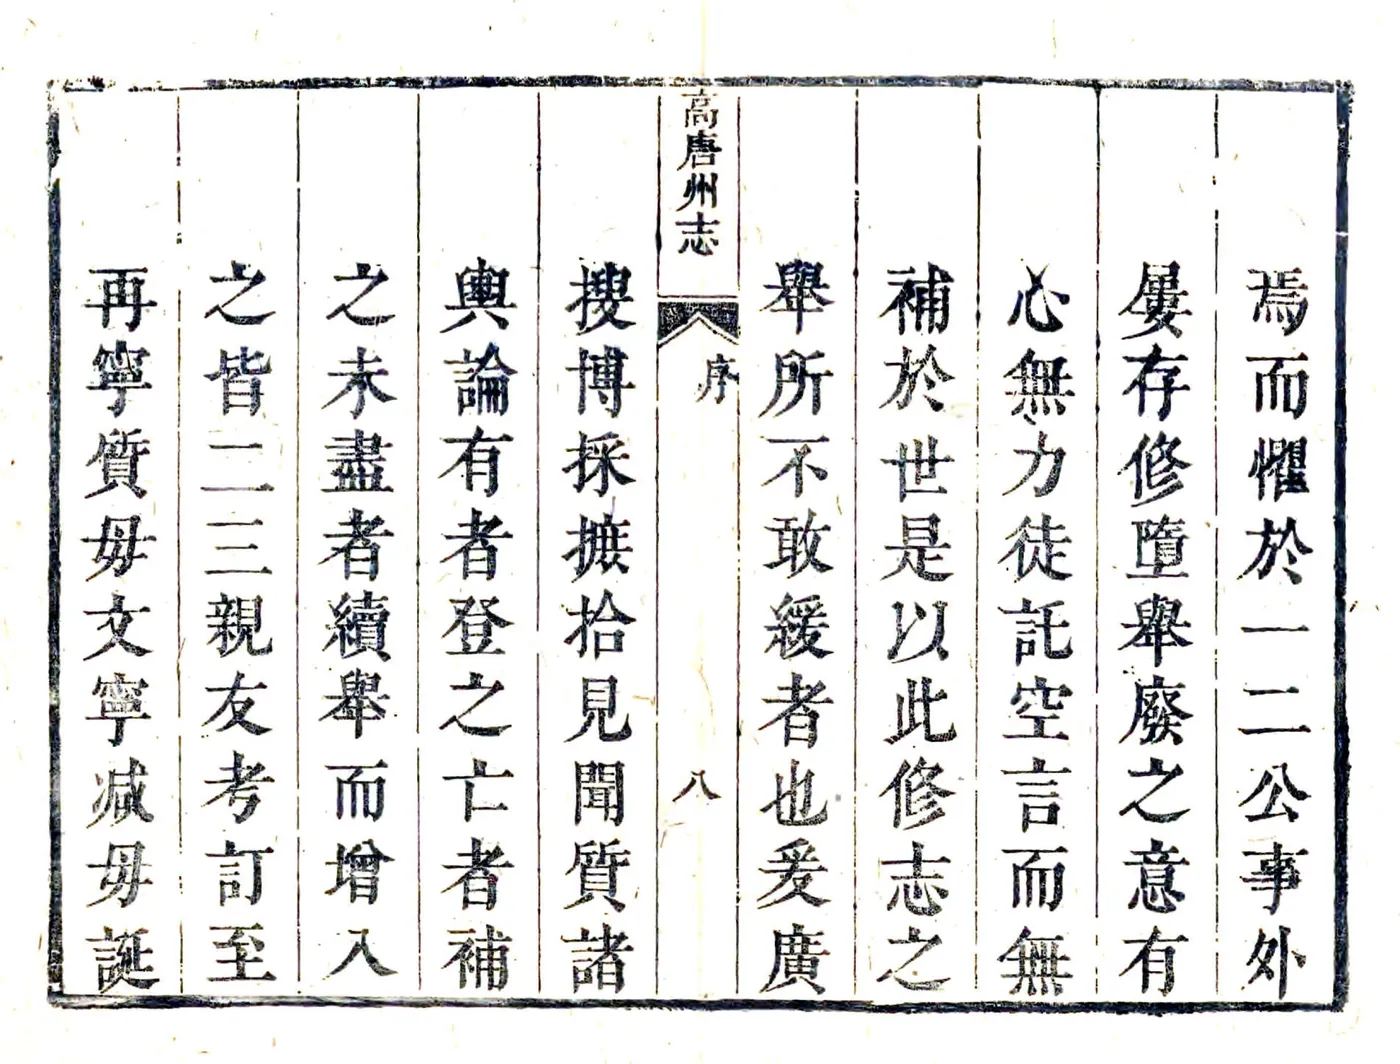 焉而懼於一二公事外
屢存修墮舉廢之意有
心無力徒託空言而無
補於世是以此修志之
舉所不敢緩者也爰廣
高唐州志
序
八
搜博採摭拾見聞質諸
輿論有者登之亡者補
之未盡者續舉而增入
之皆二三親友考訂至
再寧質毋文寧減毋誕